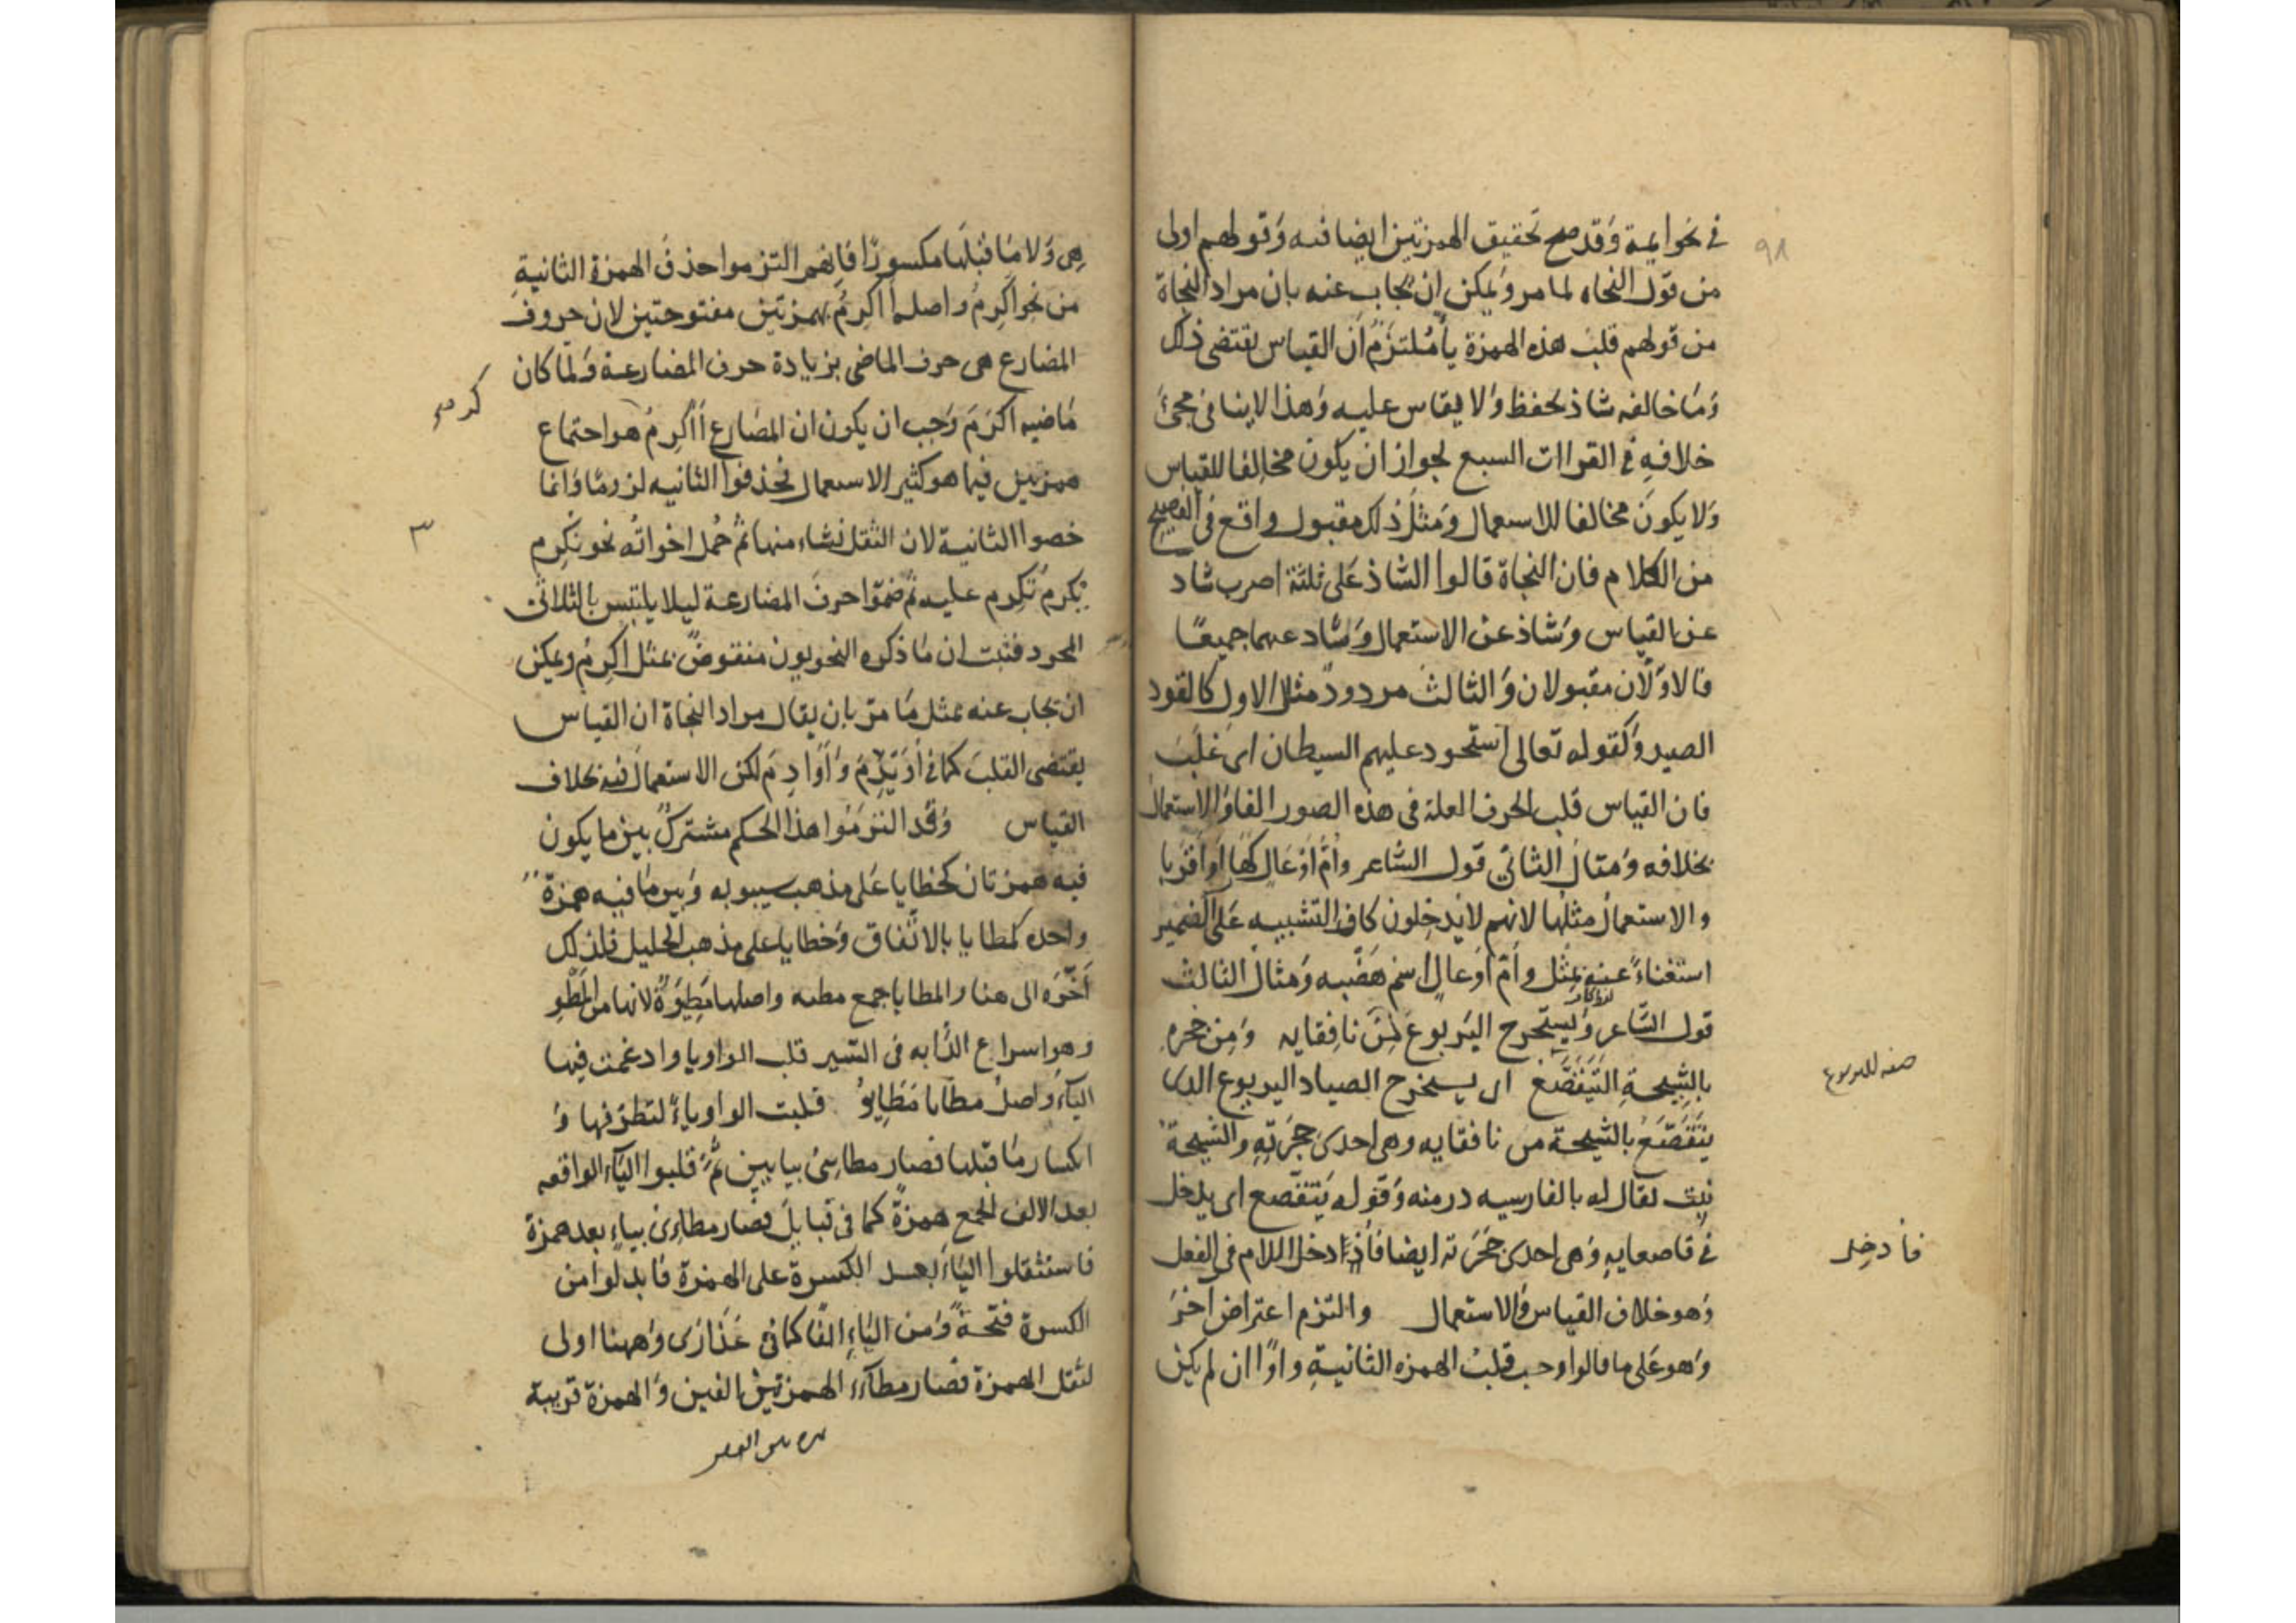 ٩٨
في نحو ايمة وقد صح تحقيق الهمزتين ايضا فيه وَقولهم اولى
من قول النحاه لما مر وَيمكن ان يجاب عنه بان مراد النحاة
من قولهم قلب هذه الهمزة ياً مُلتزَمٌ اَن القياس يقتضى ذلك
وَمَا خالفه شاذ يحفظ وَلا يقاس عليه وَهذا لا ينافى مجئ
خلافهِ في القراات السبع لجواز ان يكون مخالفا للقياس
وَلا يكون مخالفا للاستعمال وَمثل ذلك مقبول واقع فى الفصيح
من الكلام فان النحاة قالوا الشاذ عَلى ثلثة اصرب شاد
عن القياس وَشاذ عن الاستعمال وَشاد عنهما جميعًا
فالاوّلان مقبولان وَالثالث مردودٌ مثال الاول كالقود
الصيد وَكقوله تعالى استحود عليهم السيطان اى غلبَ
فان القياس قلب الحرف العلة فى هذه الصور الفا وَالاستعمال
بخلافه وَمثالُ الثانى قول الشاعر وأمّ اوْعَالٍ كَهَا اَوْ اَقرَبا
والاستعمالُ مثلُها لانهم لا يدخلون كاف التشبيه عَلى الضمير
استغناءً عنه بمثل و أمّ اوعالٍ اسم هَضْبه وَمثالُ الثالث
قول الشاعر وَيستخرج اليَربوع مِن نافِقايه وَمِن جُحره
بالشِيحةِ اليَتَقَصَّعُ اى يستخرج الصياد اليربوع الدى
يَتَقصّعُ بالشيحة من نافقايه وهى احدى جحَرَتهِ والشيحة
نبت يقال له بالفارسيه درمنه وَقوله يَتقصّع اى يدخل
في قاصعايهِ وَهى احدى جحَرَته ايضا فأذا ادخل اللام فى الفعل
وَهو خلاف القياس وَالاستعمال والتزم اعتراض اخرَ
وَهو عَلى ما قالوا وحب قلبُ الهمزه الثانيةِ واوًا ان لم يكن
صفه لليربوع
فأدخل
هِى وَلا مَا قبْلَها مكسورًا فَانهم التزموا حذفَ الهمزة الثانيةِ
من نحو اُكرِمُ واصله أاُكرِمُ بهمزتين مفتوحتين لان حروف
المضارع هى حرف الماضى بزيادة حرف المضارعة وَلما كان
مَاضيه اكرَمَ وَجب ان يكون ان المضارع أاُكرِمُ هو احتماع
همزتين فيما هو كثير الاستعمال فحذفوا الثانيه لزومًا وَانما
خصوا الثانية لان الثقل نشاء منها ثم حُمل اخواتُه نحو نكرِم
يُكرِمُ تُكرِم عليه ثم ضمّوا حرفَ المضارعة ليلا يلتبس بالثلاثى
المجرد فثبت ان مَا ذكره النحويون منقوضٌ بمثل اُكرِمُ ويمكن
ان يجاب عنه بمثل مَا مرّ بان يقال مراد النحاة ان القياس
يقتضى القلبَ كما في أُوَيْدِمَ وَ أَوَادِمَ لكن الاستعمالَ فيه بخلاف
القياس وَقد التزمُوا هذا الحكم مشتركٌ بين ما يكون
فيه همزتان كخطايا عَلى مذهب سيبويه وَبين مَا فيه همزة
واحده كمطايا بالاتّفاق وَخطايا على مذهب الخليل فلذلك
أخّرَه الى هنا والمطايا جمع مطيه واصلها مَطِيوَةٌ لانها من المَطْوِ
وهو اسراع الدَّابه فى السَير قلب الواو يا وادغمت فيها
الياَء وَاصلُ مطايا مَطَايِوُ قلبت الواو ياءً لتطرّفها وَ
انكسار مَا قبلها فصار مطايىُ بيايين ثمَّ قلبوا الياءَ الواقعه
بعد الالف الجمع همزةً كما فى قبايلَ فصار مطاءِىُ بياءٍ بعد همزة
فاستثقلوا الياءَ بعد الكسرة على الهمزة فابدلوا من
الكسرة فتحةً وَمن الياءِ الفًا كما فى عَذَارَى وَههنا اولى
لثقل الهمزة فصار مطاءَا الهمزة بين الفين وَالهمزة قريبة